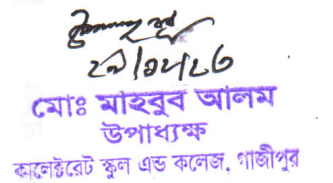 মোঃ মাহবুব আলম
উপাধ্যক্ষ
কালেক্টরেট স্কুল এন্ড কলেজ, গাজীপুর